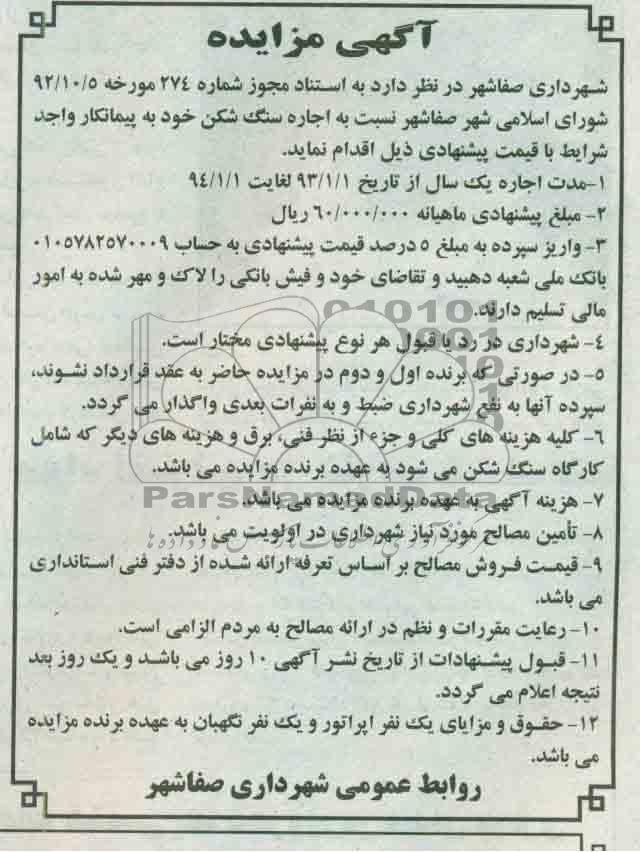 آگهی مزایده
شهرداری صفاشهر در نظر دارد به استناد مجوز شماره ۲۷۴ مورخه ۹۲/۱۰/۵
شورای اسلامی شهر صفاشهر نسبت به اجاره سنگ شکن خود به پیمانکار واجد
شرایط با قیمت پیشنهادی ذیل اقدام نماید.
۱-مدت اجاره یک سال از تاریخ ۹۳/۱/۱ لغایت ۹٤/۱/۱
۲- مبلغ پیشنهادی ماهیانه ٦۰/۰۰۰/۰۰۰ ریال
۳- واریز سپرده به مبلغ ۵ درصد قیمت پیشنهادی به حساب ۰۱۰۵۷۸۲۵۷۰۰۰۹
بانک ملی شعبه دهبید و تقاضای خود و فیش بانکی را لاک و مهر شده به امور
مالی تسلیم دارند.
٤- شهرداری در رد یا قبول هر نوع پیشنهادی مختار است.
۵- در صورتی که برنده اول و دوم در مزایده حاضر به عقد قرارداد نشوند،
سپرده آنها به نفع شهرداری ضبط و به نفرات بعدی واگذار می گردد.
٦- کلیه هزینه های کلی و جزء از نظر فنی، برق و هزینه های دیگر که شامل
کارگاه سنگ شکن می شود به عهده برنده مزایده می باشد.
ParsNamadData
۷- هزینه آگهی به عهده برنده مزایده می باشد.
۸- تأمین مصالح مورد نیاز شهرداری در اولویت می باشد.
۹- قیمت فروش مصالح بر اساس تعرفه ارائه شده از دفتر فنی استانداری
می باشد.
۱۰- رعایت مقررات و نظم در ارائه مصالح به مردم الزامی است.
۱۱- قبول پیشنهادات از تاریخ نشر آگهی ۱۰ روز می باشد و یک روز بعد
نتیجه اعلام می گردد.
۱۲- حقوق و مزایای یک نفر اپراتور و یک نفر نگهبان به عهده برنده مزایده
می باشد.
روابط عمومی شهرداری صفاشهر